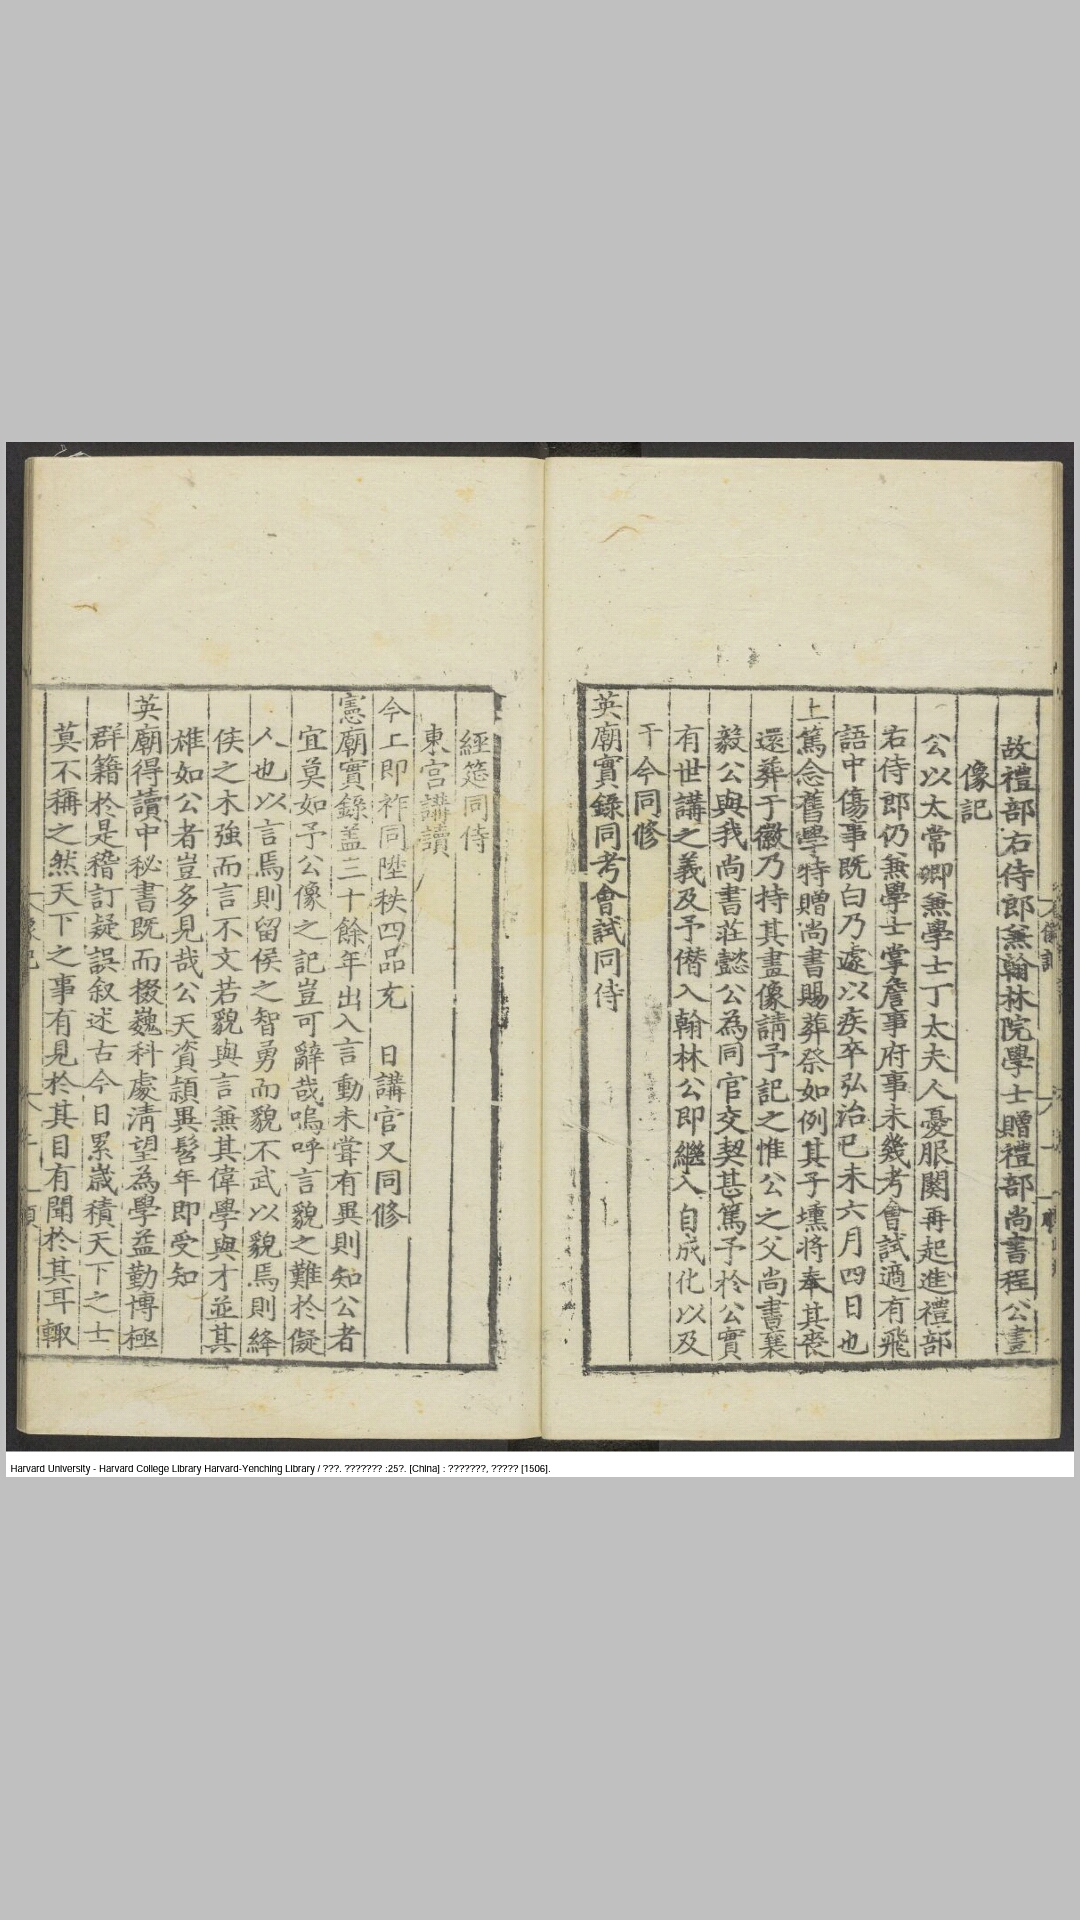 故禮部右侍郎兼翰林院學士贈禮部尚書程公畫
像記
公以太常卿兼學士丁太夫人憂服闋再起進禮部
右侍郎仍兼學士掌詹事府事未幾考會試適有飛
語中傷事既白乃遽以疾卒弘治己未六月四日也
上篤念舊學特贈尚書賜葬祭如例其子壎將奉其喪
還葬于徽乃持其畫像請予記之惟公之父尚書襄
毅公與我尚書莊懿公為同官交契甚篤予於公實
有世講之義及予僭入翰林公即繼入自成化以及
于今同修
英廟實錄同考會試同侍
經筵同侍
東宮講讀
今上即祚同陞秩四品充 日講官又同修
憲廟實錄盖三十餘年出入言動未甞有異則知公者
宜莫如予公像之記豈可辭哉嗚呼言貌之難於儗
人也以言焉則留侯之智勇而貌不武以貌焉則絳
侯之木強而言不文若貌與言兼其偉學與才並其
椎如公者豈多見哉公天資頴異髫年即受知
英廟得讀中秘書既而掇巍科處清望為學益勤博極
群籍於是稽訂疑誤叙述古今日累歲積天下之士
莫不稱之然天下之事有見於其目有聞於其耳輙
Harvard University - Harvard College Library Harvard-Yenching Library / ???. ??????? :25?. [China] : ???????, ????? [1506].